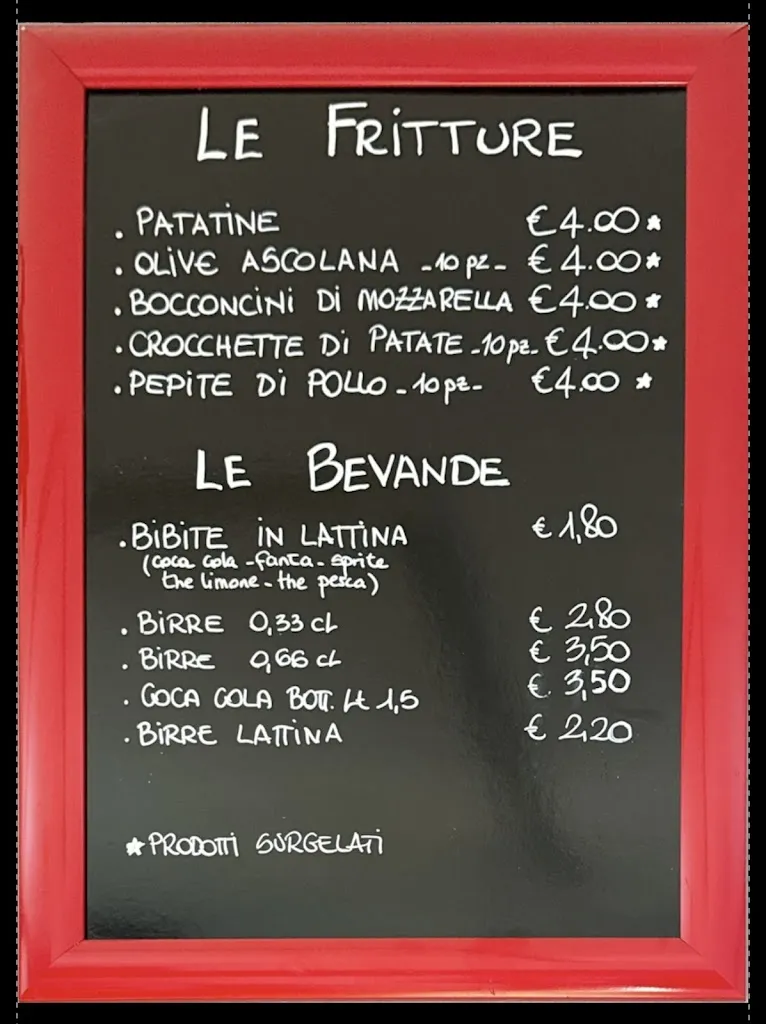 LE FRITTURE
. PATATINE € 4.00 *
. OLIVE ASCOLANA -10 pz- € 4.00 *
. BOCCONCINI DI MOZZARELLA € 4.00 *
. CROCCHETTE DI PATATE -10 pz- € 4.00 *
. PEPITE DI POLLO -10 pz- € 4.00 *
LE BEVANDE
. BIBITE IN LATTINA € 1,80
(coca cola - fanta - sprite
the limone - the pesca)
. BIRRE 0,33 CL € 2,80
. BIRRE 0,66 CL € 3,50
. COCA COLA BOTT. Lt 1,5 €. 3,50
. BIRRE LATTINA € 2,20
* PRODOTTI SURGELATI